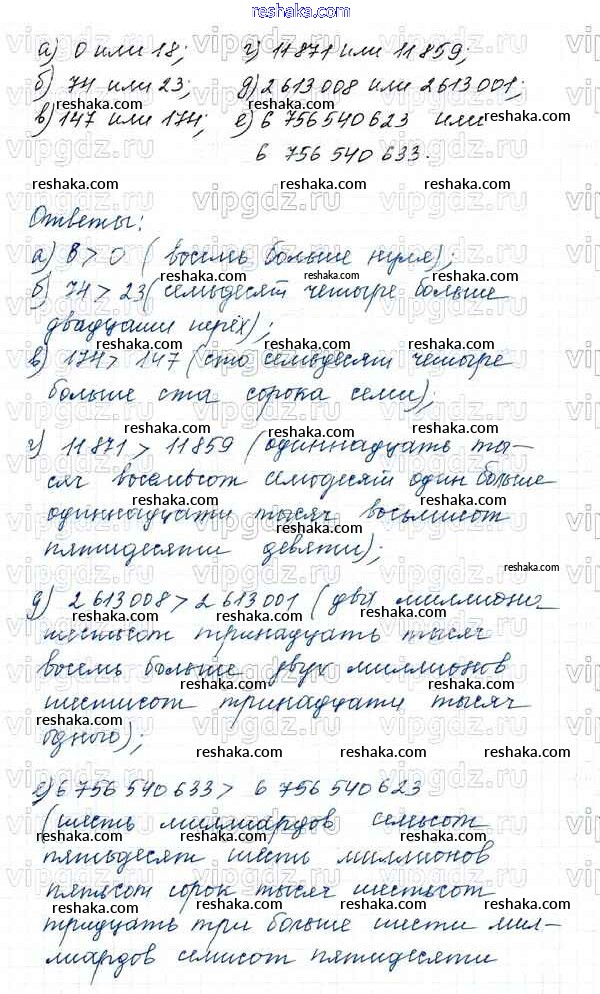 reshaka.com
а) 0 или 18; г) 11871 или 11859;
б) 74 или 23; д) 2613008 или 2613001;
в) 147 или 174; е) 6 756 540 623 или
6 756 540 633.
Ответы:
а) 8 > 0 (восемь больше нуля);
б) 74 > 23 (семьдесят четыре больше
двадцати
в) 174 > 147 (сто семьдесят четыре
больше ста сорока семи);
г) 11871 > 11859 (одиннадцать ты-
сяч восемьсот семьдесят один больше
одиннадцати тысяч восьмисот
пятидесяти девяти);
д) 2 613 008 > 2 613 001 (два миллиона
шестьсот тринадцать тысяч
восемь больше двух миллионов
шестисот тринадцати тысяч
одного);
е) 6 756 540 633 > 6 756 540 623
(шесть миллиардов семьсот
пятьдесят шесть миллионов
пятьсот сорок тысяч шестьсот
тридцать три больше шести мил-
лиардов семисот пятидесяти